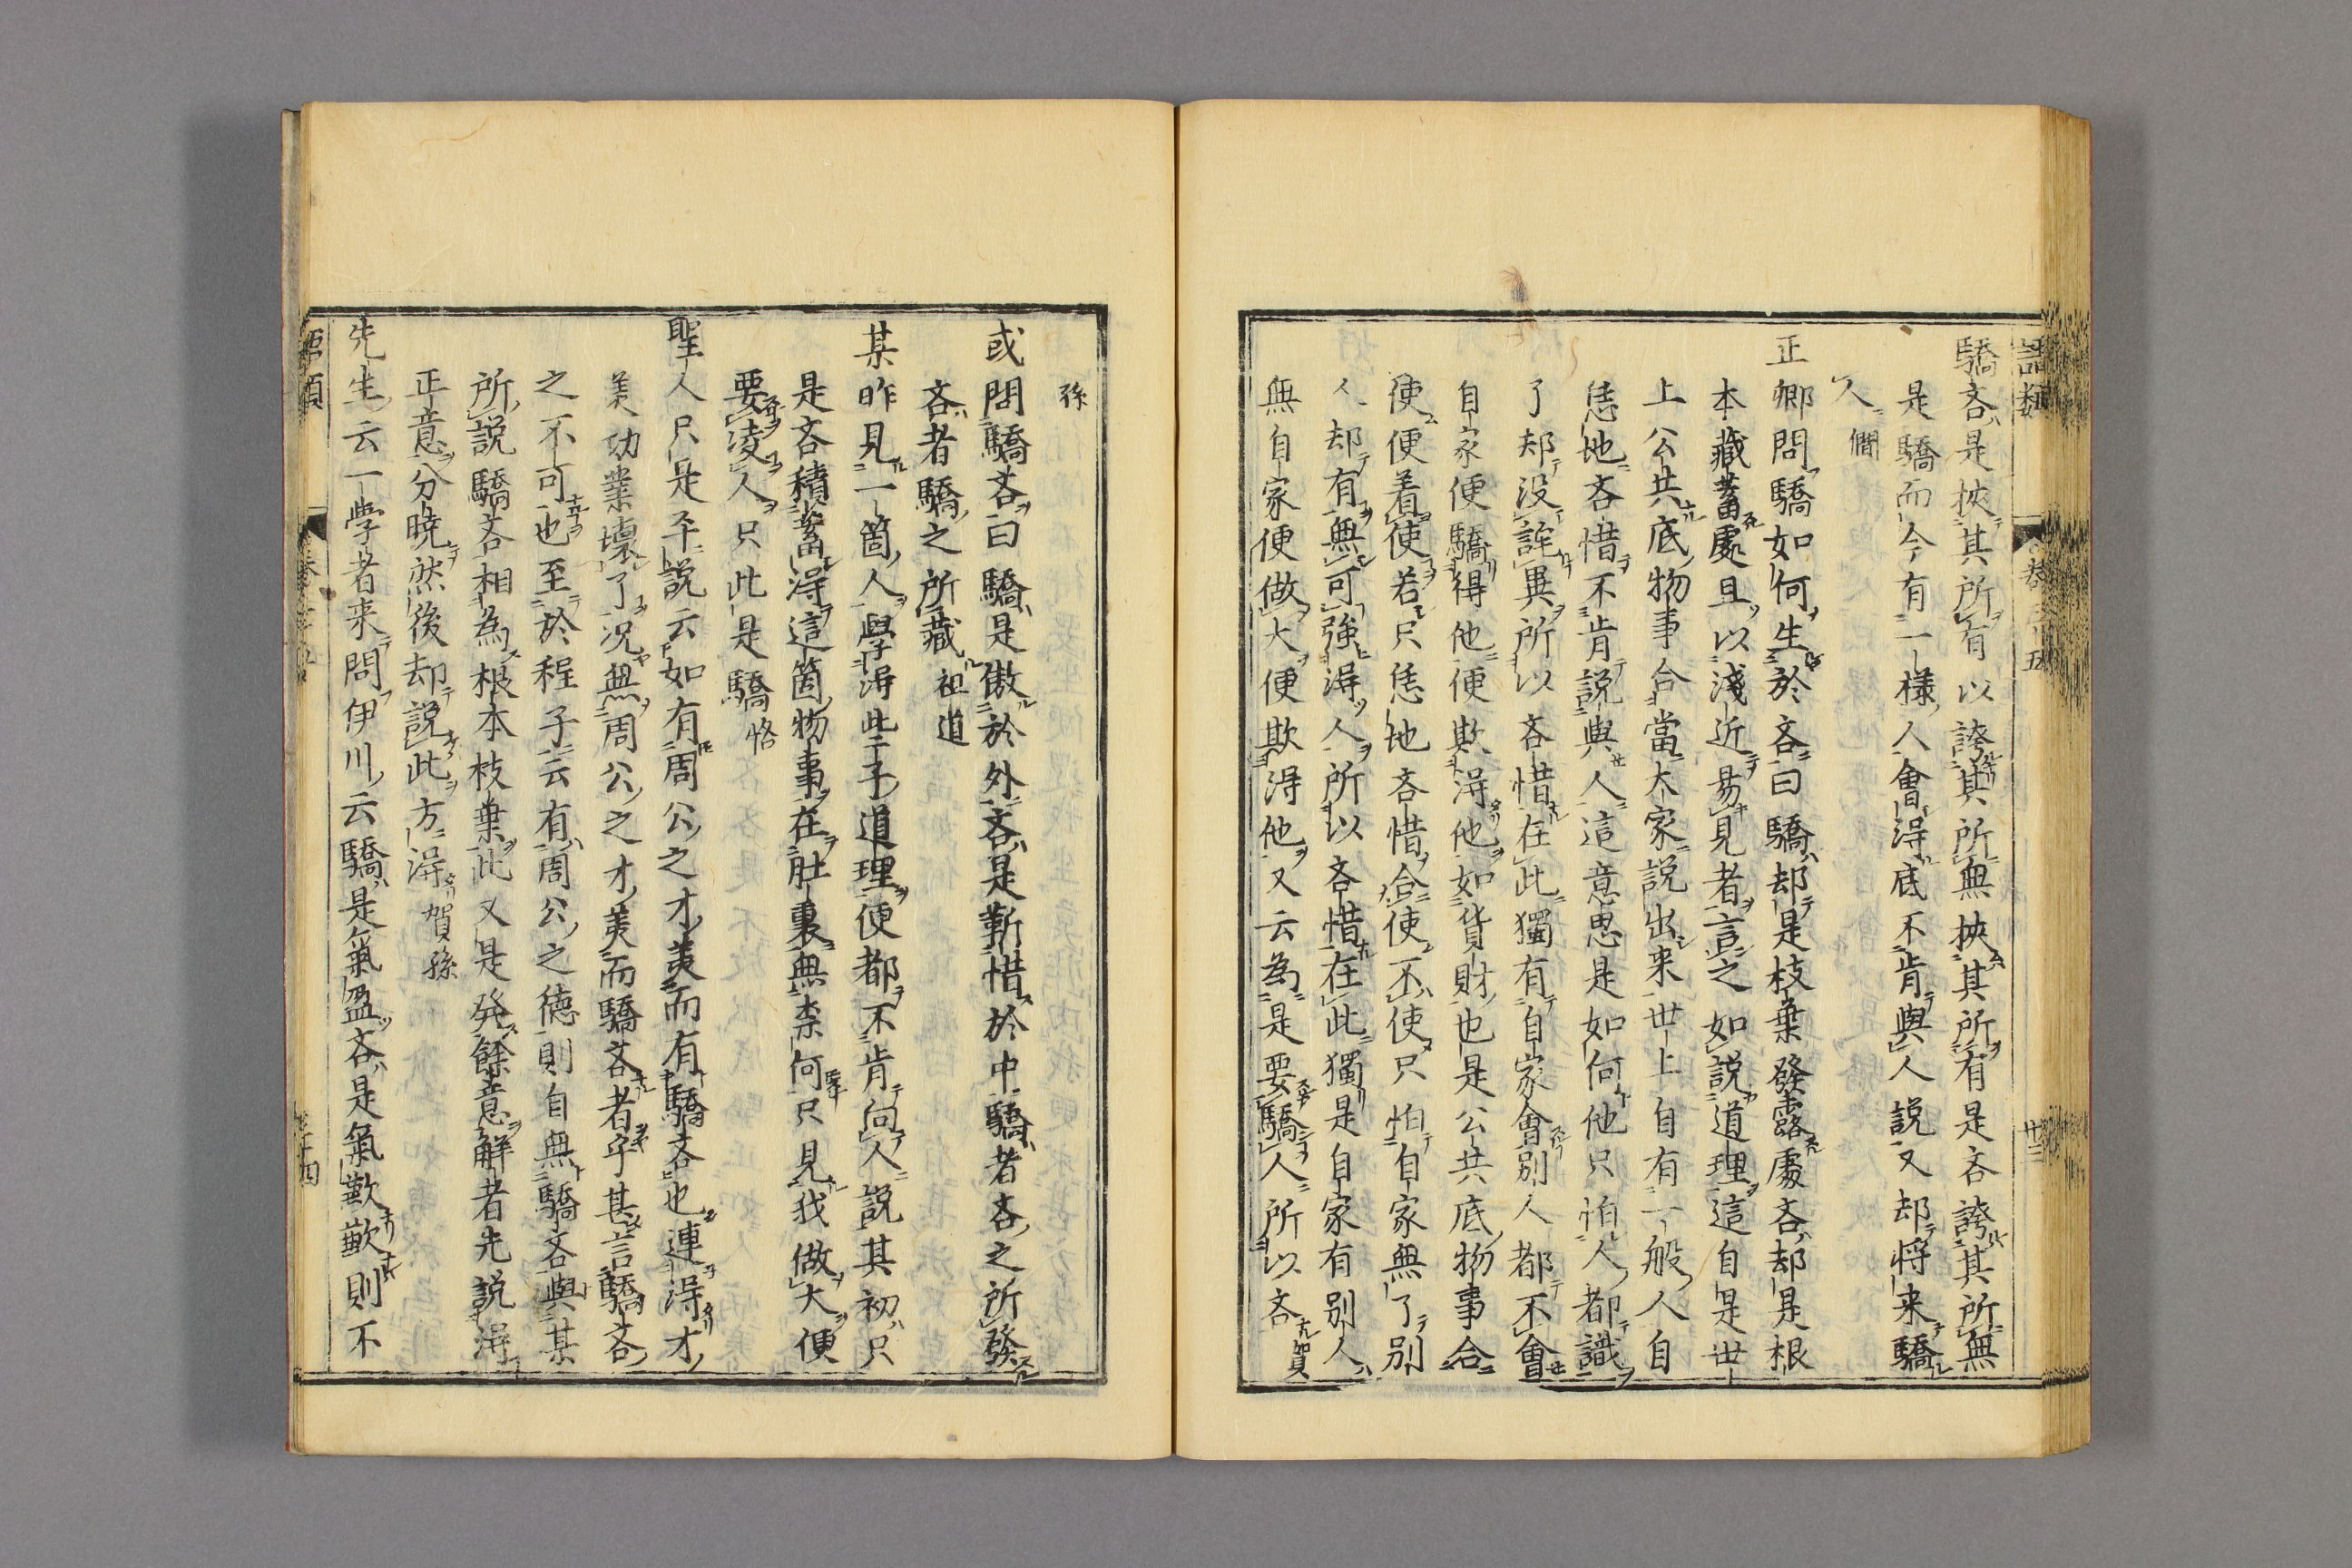 語類
卷三十五
廿三
驕吝是挾其所有以誇其所無挾其所有是吝誇其所無
是驕而今有一樣人會得底不肯與人説又却将来驕
人僩
正卿問驕如何生於吝曰驕却是枝葉發露處吝却是根
本藏蓄處且以淺近易見者言之如説道理這自是世
上公共底物事合當大家説出来世上自有一般人自
恁地吝惜不肯説與人這意思是如何他只怕人都識
了却没詫異所以吝惜在此獨有自家會別人都不會
自家便驕得他便欺得他如貨財也是公共底物事合
使便着使若只恁地吝惜合使不使只怕自家無了別
人却有無可強得人所以吝惜在此獨是自家有別人
無自家便做大便欺得他又云為是要驕人所以吝賀
孫
或問驕吝曰驕是傲於外吝是靳惜於中驕者吝之所發
吝者驕之所藏祖道
某昨見一箇人學得此二子道理便都不肯向人説其初只
是吝積蓄得這箇物事在肚裏無柰何只見我做大便
要凌人只此是驕恪
聖人只是平説云如有周公之才美而有驕吝也連得才
美功業壞了况無周公之才美而驕吝者乎甚言驕吝
之不可也至於程子云有周公之德則自無驕吝與某
所説驕吝相為根本枝葉此又是発餘意解者先説得
正意分曉然後却説此方得賀孫
先生云一學者来問伊川云驕是氣盈吝是氣歉歉則不
語類